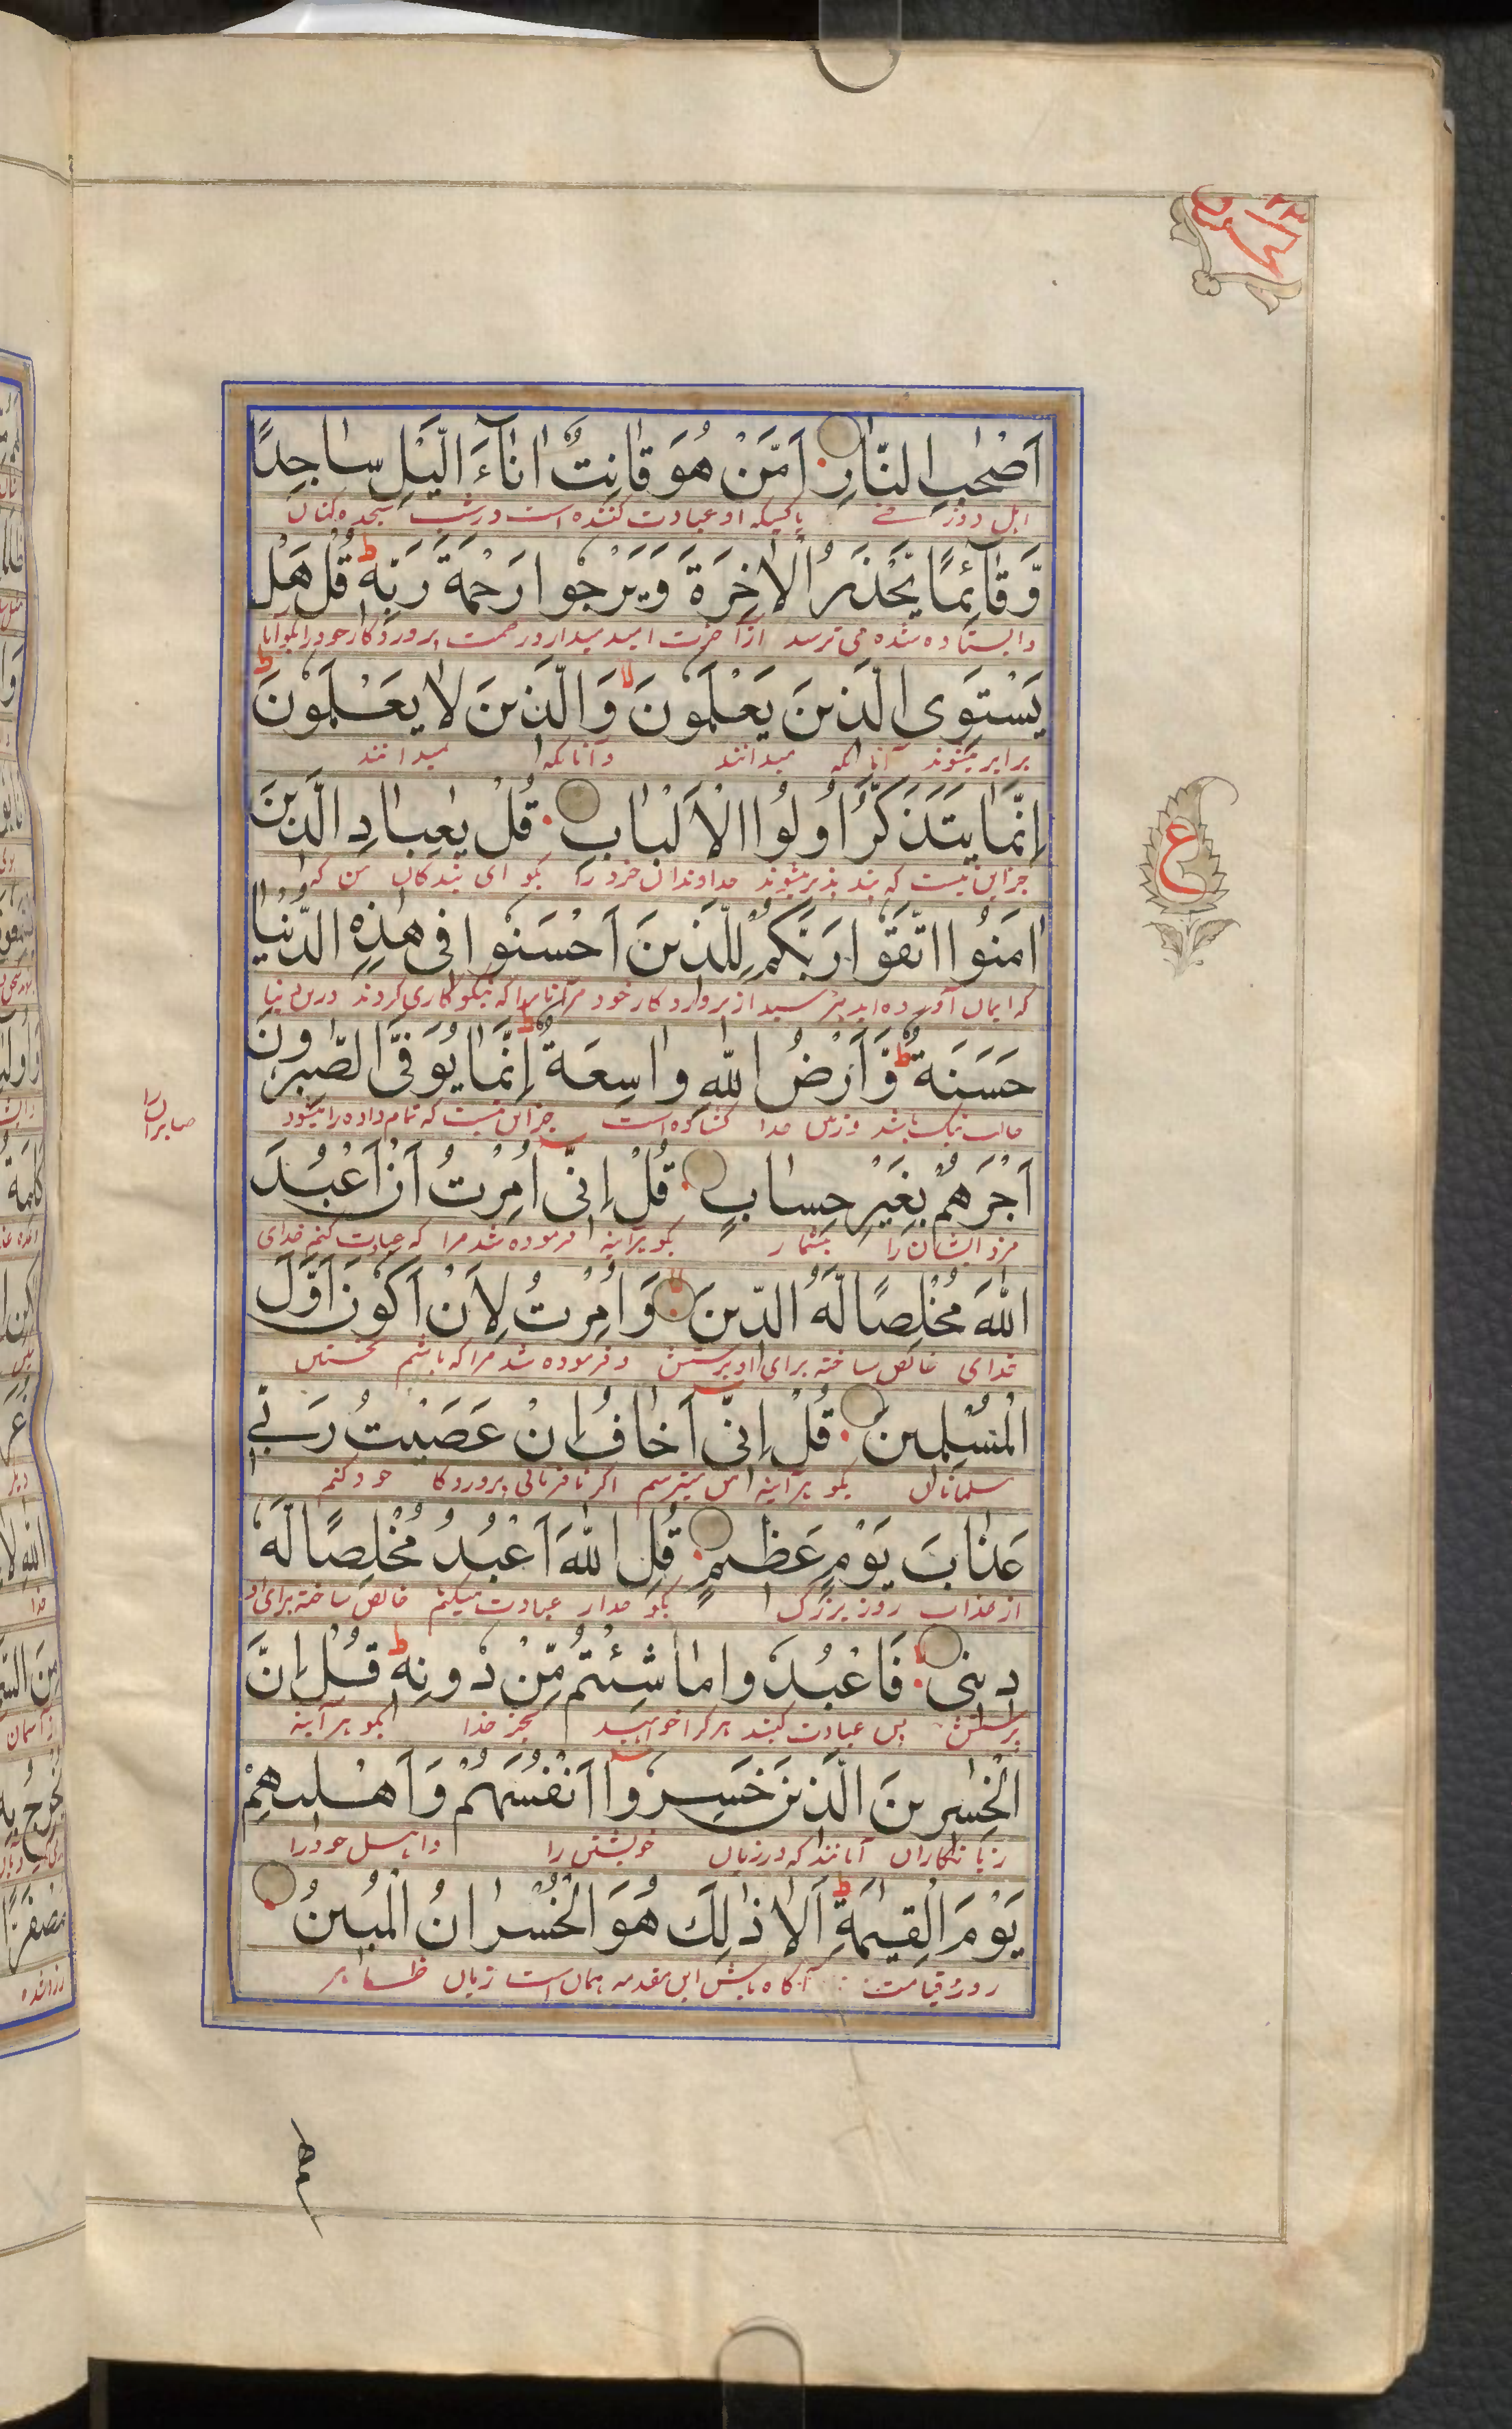 اَصْحٰبِ النَّارِ اَمَّنْ هُوَ قٰانِتٌ اٰنٰآءَ الَّيْلِ سٰاجِدًا
اهل دوزخ یا کسیکه او عبادت کننده است در شب سجده کنان
وَّقٰآئِمًا يَّحْذَرُ الْاٰخِرَةَ وَيَرْجُوا رَحْمَةَ رَبِّهٖ ط قُلْ هَلْ
وایستاده شده می ترسد از آخرت امید میدارد رحمت پروردکار خود را بکو آیا
يَسْتَوِى الَّذِينَ يَعْلَمُونَ لا وَالَّذِينَ لٰا يَعْلَمُونَ ط
برابر میشوند آنانکه میدانند و آنانکه نمیدانند
اِنَّمٰا يَتَذَكَّرُ اُولُوا الْاَلْبٰابِ قُلْ يٰعِبٰادِ الَّذِينَ
جز این نیست که پند پذیر میشوند خداوندان خرد را بکو ای بندکان من که
اٰمَنُوا اتَّقَوْا رَبَّكُمْ لِلَّذِينَ اَحْسَنُوا فِى هٰذِهِ الدُّنْيٰا
که ایمان آورده اید بترسید از پروردکار خود مر آنانرا که نیکوکاری کردند درین دنیا
حَسَنَةٌ ط وَّاَرْضُ اللّٰهِ وٰاسِعَةٌ ط اِنَّمٰا يُوَفَّى الصّٰبِرُونَ
حالت نیک باشد و زمین خدا کشاده است جز این نیست که تمام داده را میشود
صابران را
اَجْرَهُمْ بِغَيْرِ حِسٰابٍ قُلْ اِنِّى اُمِرْتُ اَنْ اَعْبُدَ
مزد ایشان را بیشمار بکو هرآینه فرموده شد مرا که عبادت کنم خدای
اللّٰهَ مُخْلِصًا لَّهُ الدِّينَ لا وَاُمِرْتُ لِاَنْ اَكُونَ اَوَّلَ
خدای خالص ساخته برای او پرستش و فرموده شد مرا که باشم نخستین
الْمُسْلِمِينَ قُلْ اِنِّى اَخٰافُ اِنْ عَصَيْتُ رَبِّى
مسلمانان بکو هرآینه من میترسم اکر نافرمانی پروردکا خود کنم
عَذٰابَ يَوْمٍ عَظِيمٍ قُلِ اللّٰهَ اَعْبُدُ مُخْلِصًا لَّهُ
از عذاب روز بزرک بکو خدارا عبادت میکنم خالص ساخته برای او
دِينِى فَاعْبُدُوا مٰا شِئْتُمْ مِّنْ دُونِهٖ ط قُلْ اِنَّ
پرستش پس عبادت کنید هرکرا خواهید بجز خدا بکو هرآینه
الْخٰسِرِينَ الَّذِينَ خَسِرُوآ اَنْفُسَهُمْ وَاَهْلِيهِمْ
زیانکاران آنانند که در زیان خویشتن را و اهل خود را
يَوْمَ الْقِيٰمَةِ ط اَلٰا ذٰلِكَ هُوَ الْخُسْرٰانُ الْمُبِينُ
روز قیامت آکاه باش این مقدمه همان است زیان ظاهر
ع
لهم